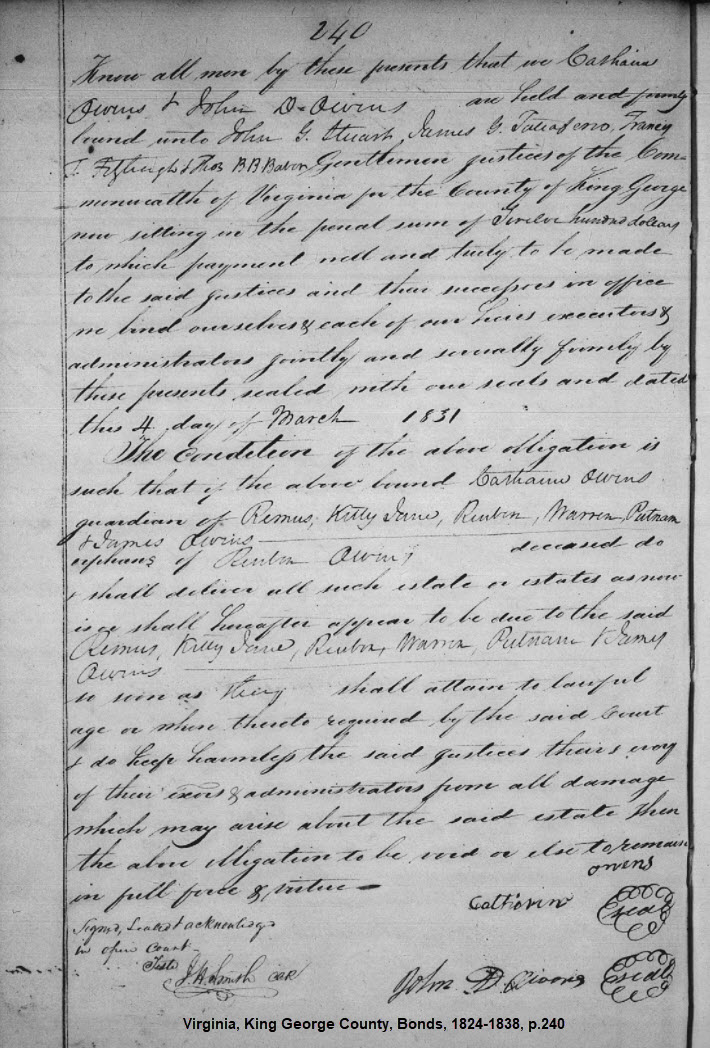 240
Know all men by these presents that we Catharine
Owens & John D Owens are held and firmly
bound unto John G. Stuart, James G. Taliaferro, Francis
T. Fitzhugh & Thos B B Babor Gentlemen justices of the Com=
=monwealth of Virginia for the County of King George
now sitting in the penal sum of Twelve hundred dollars
to which payment well and truly to be made
to the said justices and their successors in office
we bind ourselves & each of our heirs executors &
administrators jointly and severally firmly by
these presents sealed with our seals and dated
this 4 day of March 1831
The Condition of the above obligation is
such that if the above bound Catharine Owens
guardian of Remus, Kitty Jane, Reuben, Warren, Putnam
& James Owens
orphans of Reuben Owens deceased do
& shall deliver all such estate or estates as now
is or shall hereafter appear to be due to the said
Remus, Kitty Jane, Reuben, Warren, Putnam & James
Owens
so soon as they shall attain to lawful
age or when thereto required by the said Court
& do keep harmless the said justices their & every
of their exors & administrators from all damage
which may arise about the said estate then
the above obligation to be void or else to remain
in full force & virtue
owens
Catharine Seal
Signed, Sealed & acknowledged
in open Court
Teste
J. H. Smith CGK
John D. Owens Seal
Virginia, King George County, Bonds, 1824-1838, p.240